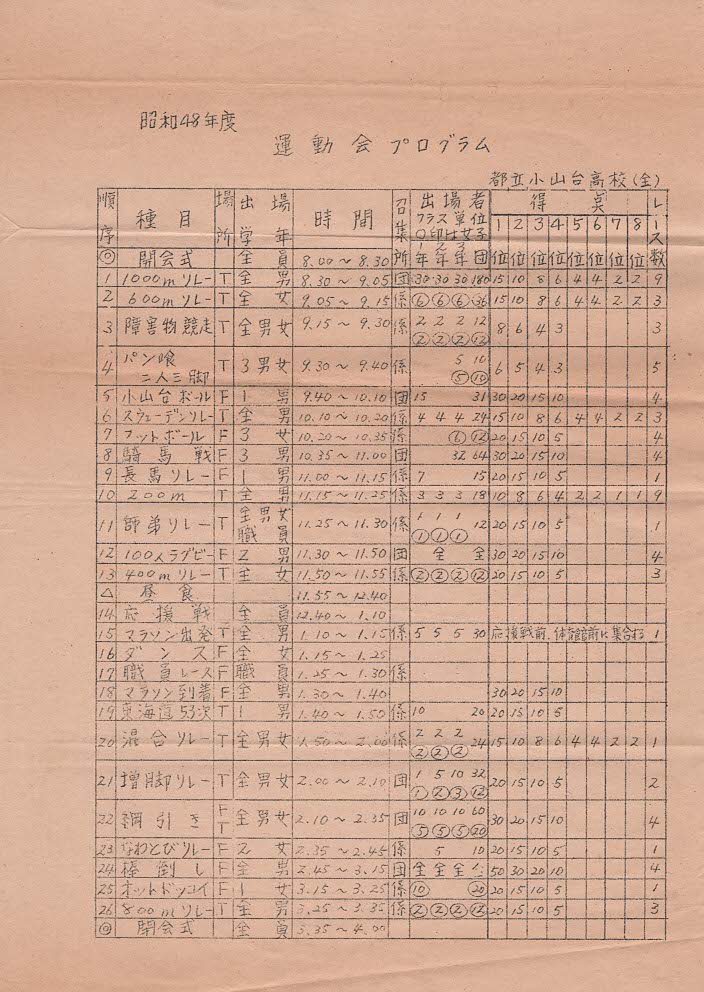 昭和48年度
運動会プログラム
都立小山台高校(全)
順序 種目 場所 出場学年 時間 召集所 出場者 クラス単位 ○印は女子 1年 2年 3年 団 得点 1位 2位 3位 4位 5位 6位 7位 8位 レース数
◎ 開会式 全員 8.00～8.30
1 1000mリレー T 全男 8.30～9.05 団 30 30 30 180 15 10 8 6 4 4 2 2 9
2 600mリレー T 全女 9.05～9.15 係 ⑥ ⑥ ⑥ ㊱ 15 10 8 6 4 4 2 2 3
3 障害物競走 T 全男女 9.15～9.30 係 2 2 2 12 ② ② ② ⑫ 8 6 4 3 3
4 パン喰二人三脚 T 3男女 9.30～9.40 係 5 10 ⑤ ⑩ 6 5 4 3 5
5 小山台ボール F 1男 9.40～10.10 団 15 31 30 20 15 10 4
6 スウェーデンリレー T 全男 10.10～10.20 係 4 4 4 24 15 10 8 6 4 4 2 2 3
7 フットボール F 3女 10.20～10.35 係 ⑥ ⑫ 20 15 10 5 4
8 騎馬戦 F 3男 10.35～11.00 団 32 64 30 20 15 10 4
9 長馬リレー F 1男 11.00～11.15 係 7 15 20 15 10 5 1
10 200m T 全男 11.15～11.25 係 3 3 3 18 10 8 6 4 2 2 1 1 9
11 師弟リレー T 全男女職員 11.25～11.30 係 1 1 1 12 ① ① ① 20 15 10 5 1
12 100人ラグビー F 2男 11.30～11.50 団 全 全 30 20 15 10 4
13 400mリレー T 全女 11.50～11.55 係 ② ② ② ⑫ 20 15 10 5 3
△ 昼食 11.55～12.40
14 応援戦 全員 12.40～1.10
15 マラソン出発 T 全男 1.10～1.15 係 5 5 5 30 応援戦前、体育館前に集合する 1
16 ダンス F 全女 1.15～1.25
17 職員レース F 職員 1.25～1.30 係
18 マラソン到着 F 全男 1.30～1.40 30 20 15 10
19 東海道53次 T 1男 1.40～1.50 係 10 20 20 15 10 5
20 混合リレー T 全男女 1.50～2.00 係 2 2 2 24 ② ② ② 15 10 8 6 4 4 2 2 1
21 増脚リレー T 全男女 2.00～2.10 団 1 5 10 32 ① ② ③ ⑫ 20 15 10 5 2
22 綱引き F T 全男女 2.10～2.35 団 10 10 10 60 ⑤ ⑤ ⑤ ⑳ 30 20 15 10 4
23 なわとびリレー F 2女 2.35～2.45 係 5 10 20 15 10 5 1
24 棒倒し F 全男 2.45～3.15 団 全 全 全 全 50 30 20 10 4
25 オットドッコイ F 1女 3.15～3.25 係 ⑩ ⑳ 20 15 10 5 1
26 800mリレー T 全男 3.25～3.35 係 ② ② ② ⑫ 20 15 10 5 3
◎ 閉会式 全員 3.35～4.00